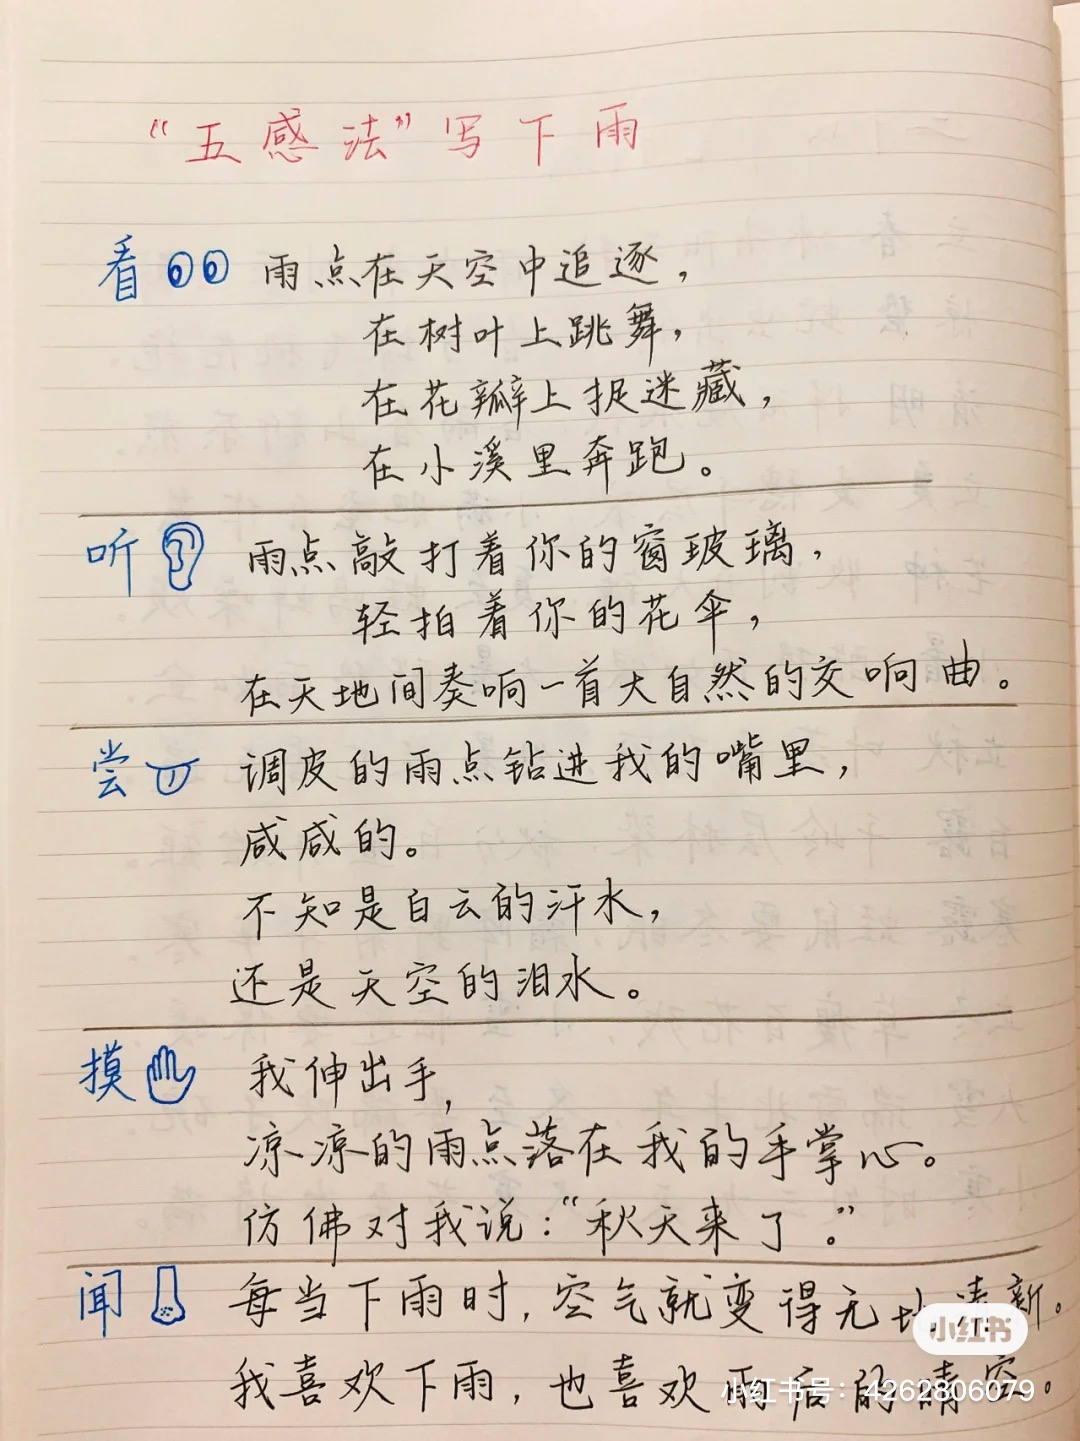 “五感法”写下雨
看 雨点在天空中追逐，
在树叶上跳舞，
在花瓣上捉迷藏，
在小溪里奔跑。
听 雨点敲打着你的窗玻璃，
轻拍着你的花伞，
在天地间奏响一首大自然的交响曲。
尝 调皮的雨点钻进我的嘴里，
咸咸的。
不知是白云的汗水，
还是天空的泪水。
摸 我伸出手，
凉凉的雨点落在我的手掌心。
仿佛对我说：“秋天来了。”
闻 每当下雨时，空气就变得无比清新。
我喜欢下雨，也喜欢雨后的晴空。
小红书
小红书号：4262806079